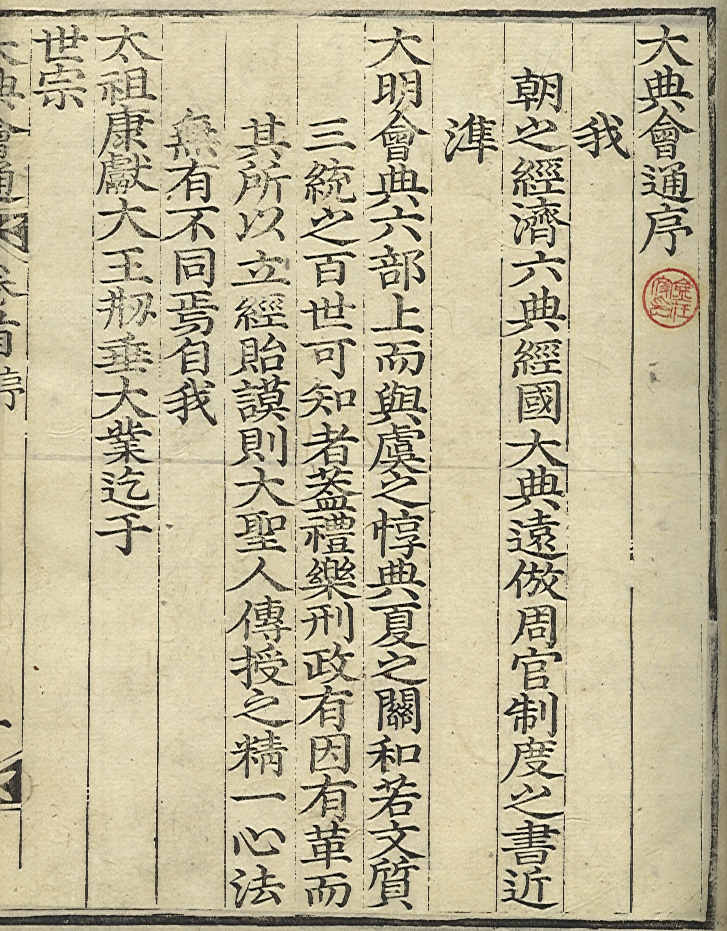 大典會通序
我
朝之經濟六典經國大典遠倣周官制度之書近
準
大明會典六部上而與虞之惇典夏之關和若文質
三統之百世可知者蓋禮樂刑政有因有革而
其所以立經貽謨則大聖人傳授之精一心法
無有不同焉自我
太祖康獻大王刱垂大業迄于
世宗
大典會通 卷首 序